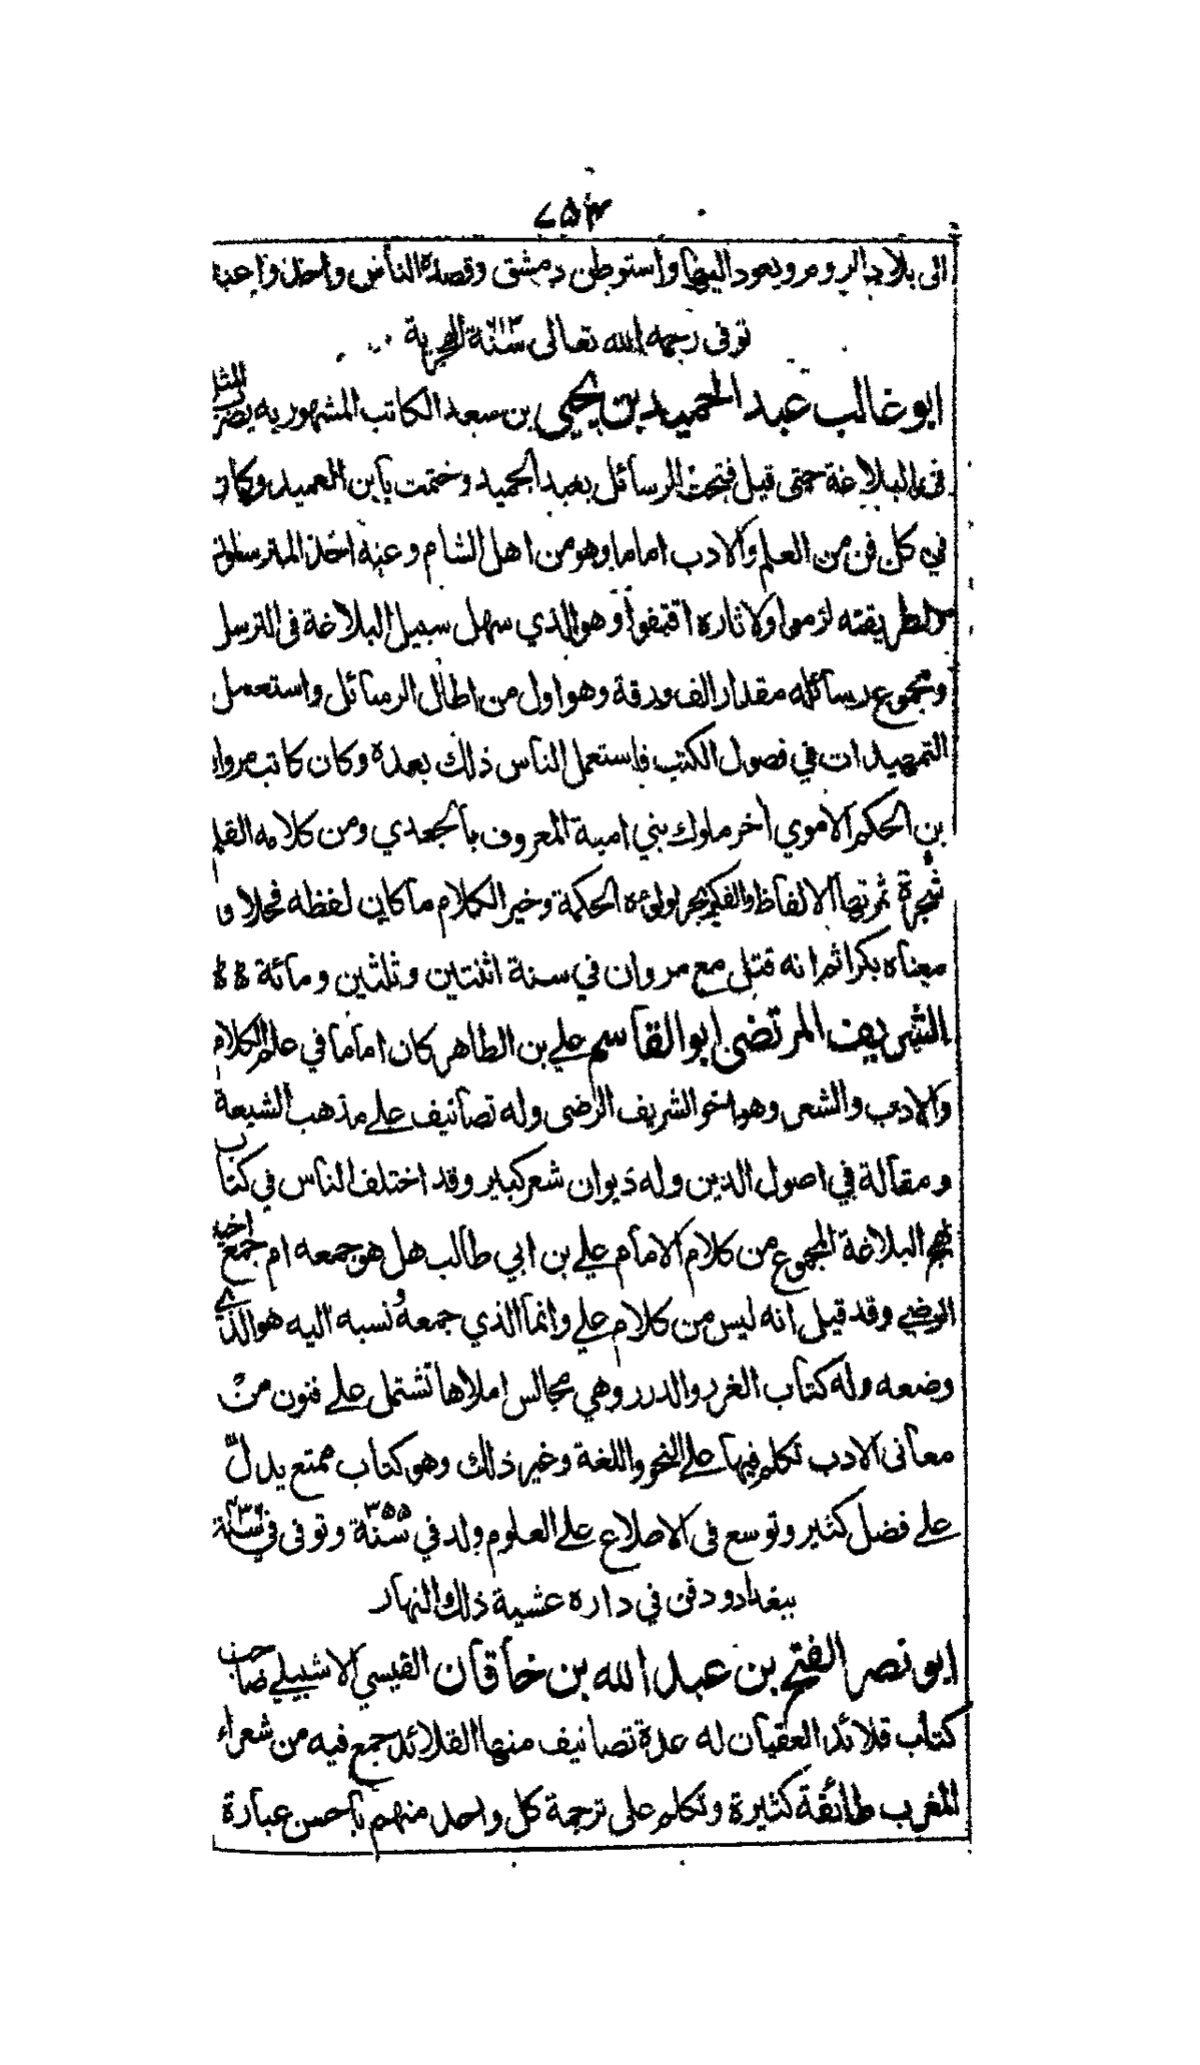 ٧٥٣
الى بلاد الروم ويعود اليها واستوطن دمشق وقصده الناس واخذوا عنه
توفى رحمه الله تعالى سنة ٦١٣ الهجرية
ابو غالب عبد الحميد بن يحيى بن سعد الكاتب المشهور به يضرب المثل
فى البلاغة حتى قيل فتحت الرسائل بعبد الحميد وختمت بابن العميد وكان
في كل فن من العلم والادب اماما وهو من اهل الشام وعنه اخذ المترسلون
ولطريقته لزموا ولاثاره اقتفوا وهو الذي سهل سبيل البلاغة فى الترسل
ومجموع رسائله مقدار الف ورقة وهو اول من اطال الرسائل واستعمل
التمهيدات في فصول الكتب فاستعمل الناس ذلك بعده وكان كاتب مروان
بن الحكم الاموي اخر ملوك بني امية المعروف بالجعدي ومن كلامه القلم
شجرة ثمرتها الالفاظ والفكر بحر لولؤه الحكمة وخير الكلام ما كان لفظه فحلا و
معناه بكرا ثم انه قتل مع مروان في سنة اثنتين وثلثين ومائة
الشريف المرتضى ابو القاسم علي بن الطاهر كان اماما في علم الكلام
والادب والشعر وهو اخو الشريف الرضى وله تصانيف على مذهب الشيعة
ومقالة في اصول الدين وله ديوان شعر كبير وقد اختلف الناس في كتاب
نهج البلاغة المجموع من كلام الامام علي بن ابي طالب هل هو جمعه ام جمع اخيه
الرضي وقد قيل انه ليس من كلام علي وانما الذي جمعه ونسبه اليه هو الذي
وضعه وله كتاب الغرر والدرر وهي مجالس املاها تشتمل على فنون من
معانى الادب تكلم فيها على النحو واللغة وغير ذلك وهو كتاب ممتع يدل
على فضل كثير وتوسع فى الاطلاع على العلوم ولد في سنة ٣٥٥ وتوفى في سنة
ببغداد ودفن في داره عشية ذلك النهار
ابو نصر الفتح بن عبد الله بن خاقان القيسي الاشبيلي صاحب
كتاب قلائد العقيان له عدة تصانيف منها القلائد جمع فيه من شعراء
المغرب طائفة كثيرة وتكلم على ترجمة كل واحد منهم باحسن عبارة